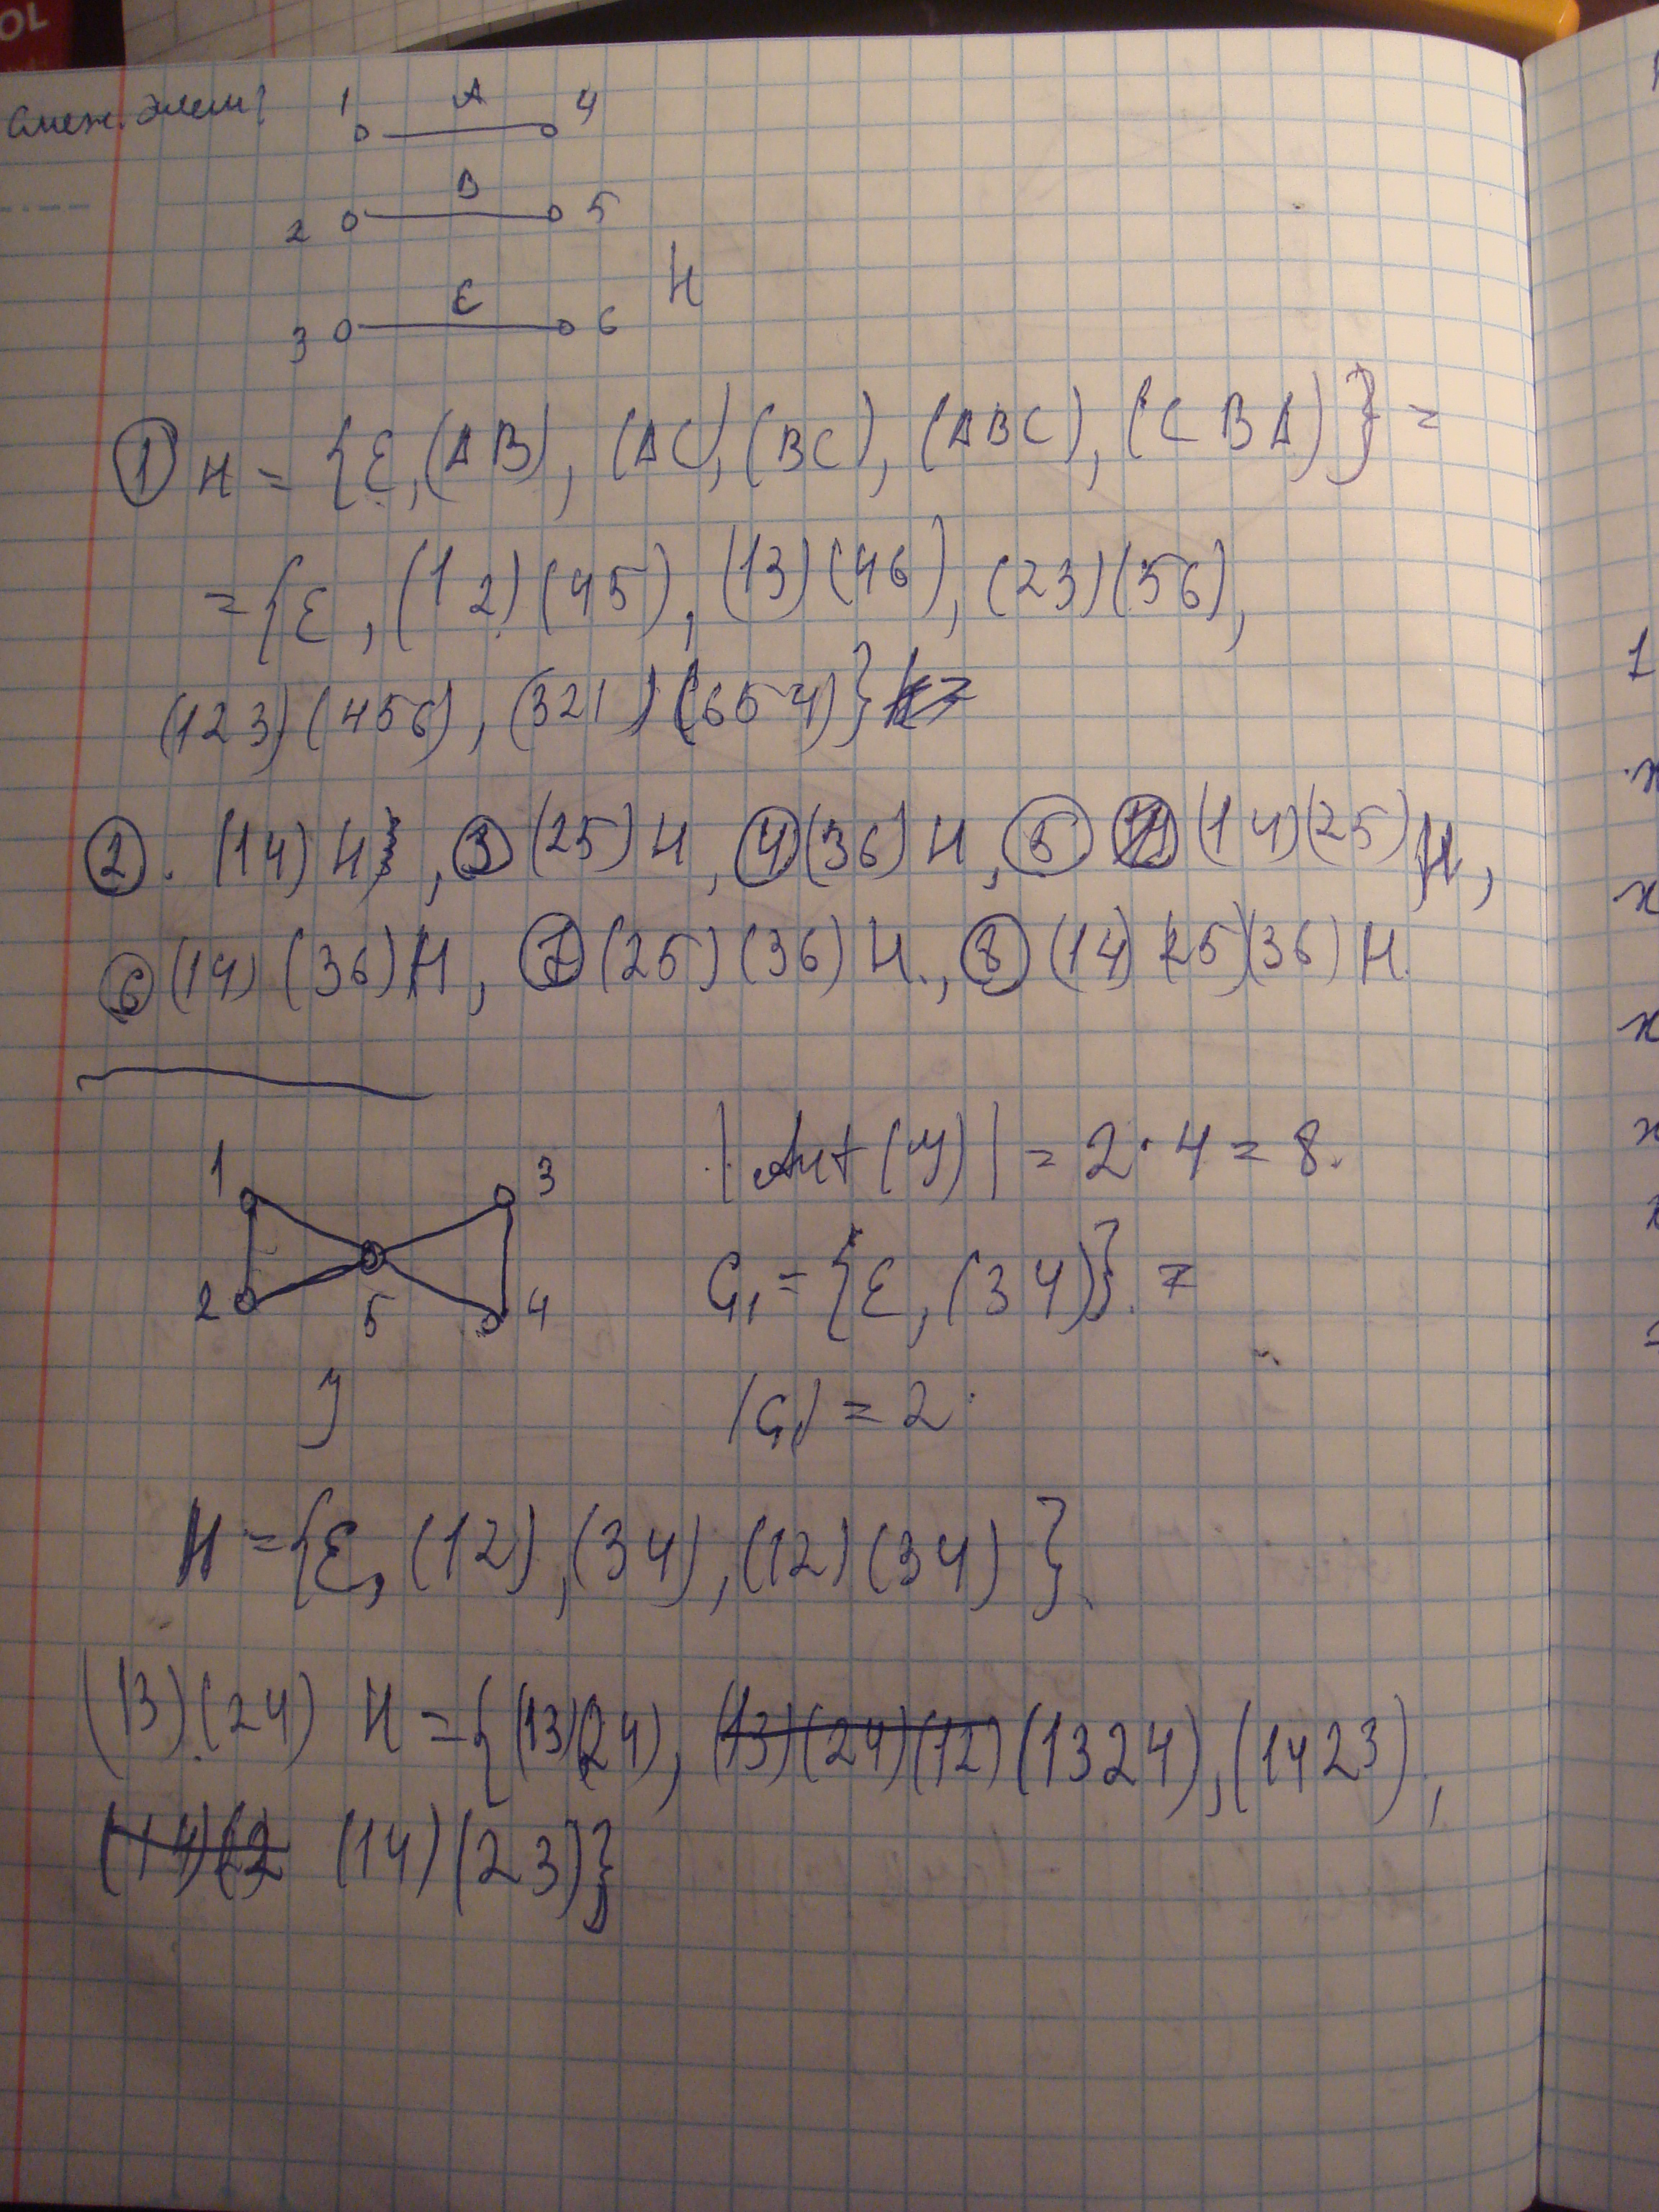 OL
смеж. элем?
1 A 4
2 B 5
3 C 6 H
① H = {ε, (AB), (AC), (BC), (ABC), (CBA)} =
= {ε, (12)(45), (13)(46), (23)(56),
(123)(456), (321)(654)}
②. (14)H, ③ (25)H, ④ (36)H, ⑤ (14)(25)H,
⑥ (14)(36)H, ⑦ (25)(36)H., ⑧ (14)(25)(36)H.
1 3 |Aut(Y)| = 2·4 = 8.
2 5 4 G₁ = {ε, (34)}. =
Y |G₁| = 2.
H = {ε, (12), (34), (12)(34)}.
(13)(24) H = {(13)(24), (13)(24)(12) (1324), (1423),
(14)(2 (14)(23)}